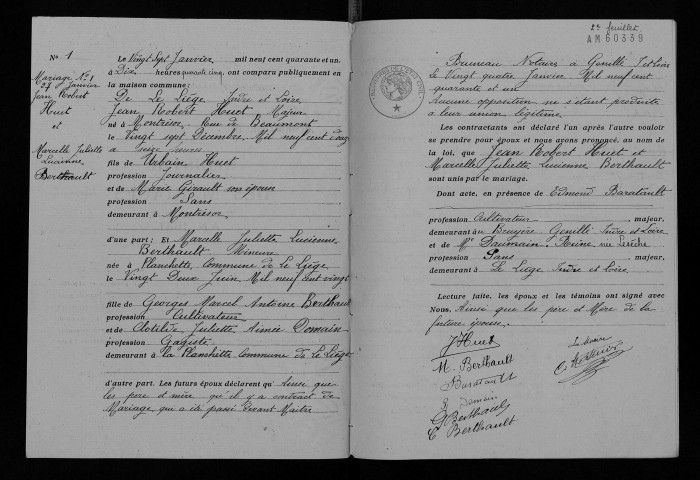 N° 1
Mariage N° 1
27 Janvier
Jean Robert
Huet
et
Marcelle Juliette
Lucienne
Berthault
Le Vingt Sept Janvier mil neuf cent quarante et un.
à Dix heures quarante cinq, ont comparu publiquement en
la maison commune:
De Le Liège, Indre et Loire
Jean Robert Huet Majeur
né à Montrésor, Rue de Beaumont
le Vingt sept Décembre, Mil neuf cent
à heures
fils de Urbain Huet
profession Journalier
et de Marie Girault son épouse
profession Sans
demeurant à Montrésor
d'une part; Et Marcelle Juliette Lucienne
Berthault Mineure
née à Planchette Commune de Le Liège
le Vingt Deux Juin, Mil neuf cent vingt
fille de Georges Marcel Antoine Berthault
profession Cultivateur
et de Clotilde, Juliette Aimée Domain
profession
demeurant à la Planchette Commune de Le Liège
d'autre part. Les futurs époux déclarent qu' Ainsi que
les père et mère qu'il y a contract de
Mariage qui a été passé devant Maître
2e feuillet
AM60339
Bruneau Notaire à Genillé Indre et Loire
le Vingt quatre Janvier Mil neuf cent
quarante et un
Aucune opposition ne s'étant produite
à leur union légitime
Les contractants ont déclaré l'un après l'autre vouloir
se prendre pour époux et nous avons prononcé, au nom de
la loi, que Jean Robert Huet et
Marcelle Juliette, Lucienne Berthault
sont unis par le mariage.
Dont acte, en présence de Edmond Baratault
profession Cultivateur majeur,
demeurant à Bruyère Genillé Indre et Loire
et de Mme Daumain, Reine, née
profession Sans majeur,
demeurant à Le Liège Indre et Loire
Lecture faite, les époux et les témoins ont signé avec
Nous. Ainsi que les père et Mère de la
future épouse.
J Huet
M. Berthault
Baratault
Domain
G Berthault
C Berthault